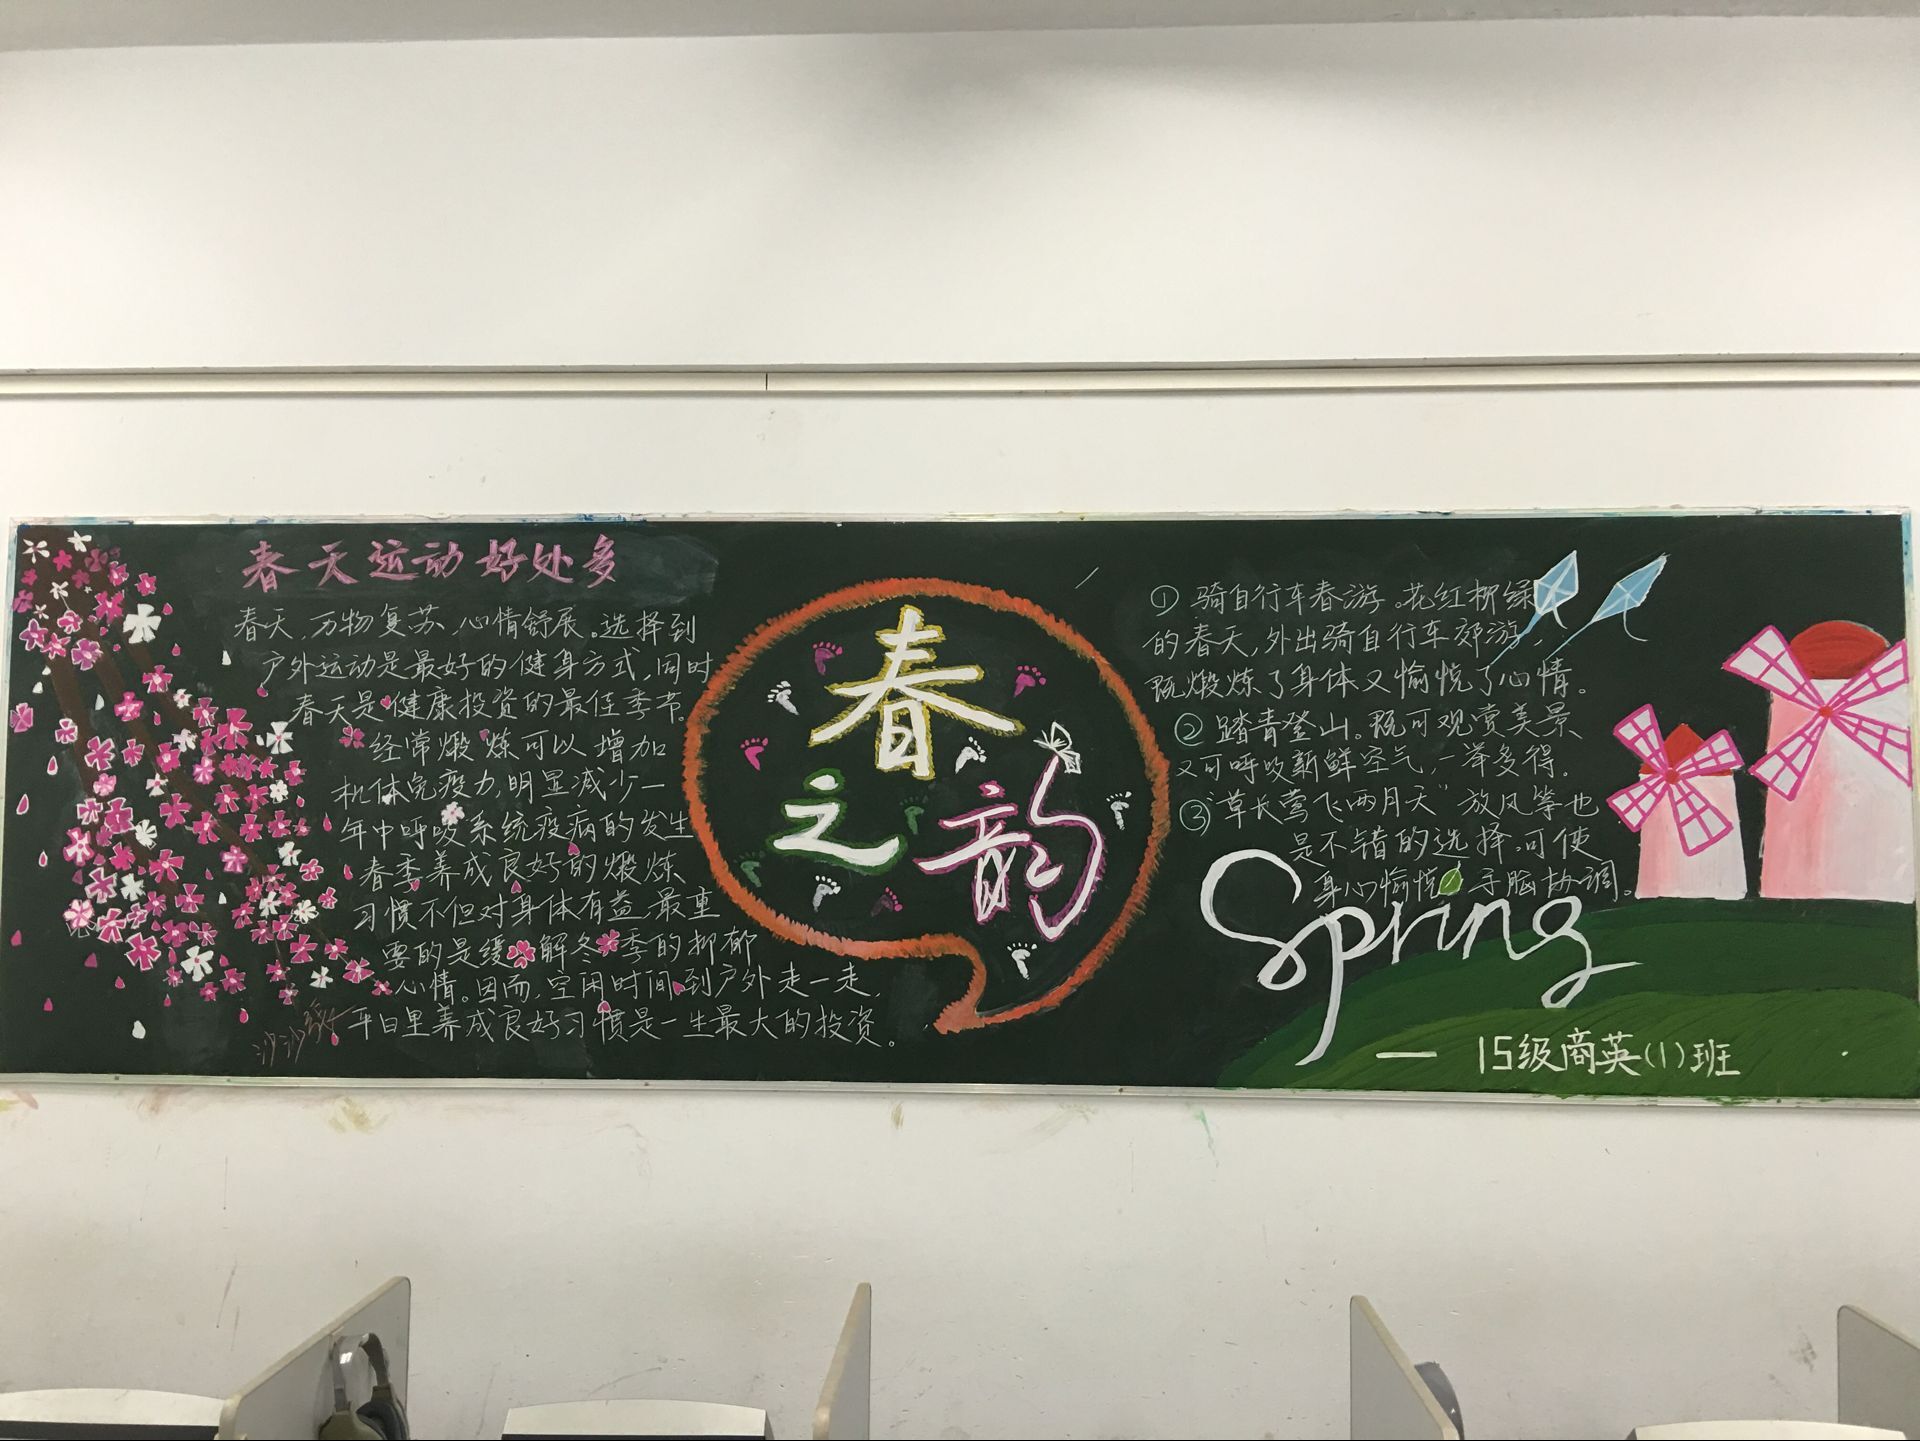 春天运动好处多
春天，万物复苏，心情舒展。选择到
户外运动是最好的健身方式，同时
春天是健康投资的最佳季节。
经常煅炼可以增加
机体免疫力，明显减少一
年中呼吸系统疫病的发生
春季养成良好的煅炼
习惯不但对身体有益，最重
要的是缓解冬季的抑郁
心情。因而，空闲时间到户外走一走，
平日里养成良好习惯是一生最大的投资。
春
之韵
① 骑自行车春游。花红柳绿
的春天，外出骑自行车郊游，
既煅炼了身体又愉悦了心情。
② 踏青登山。既可观赏美景
又可呼吸新鲜空气，一举多得。
③“草长莺飞两月天”放风筝也
是不错的选择。可使
身心愉悦 手脑协调。
Spring
— 15级商英(1)班